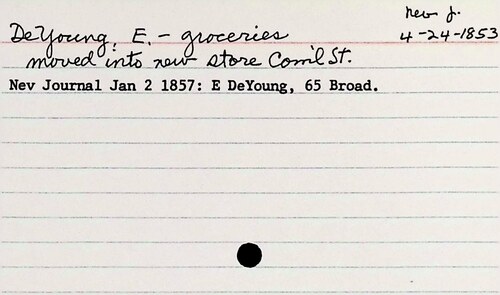 Nev J.
DeYoung, E. - groceries 4-24-1853
moved into new store Com'l St.
Nev Journal Jan 2 1857: E DeYoung, 65 Broad.